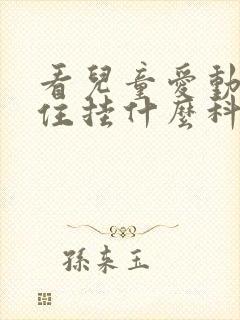 看兒童愛動
住挂什麼科
孫來玉